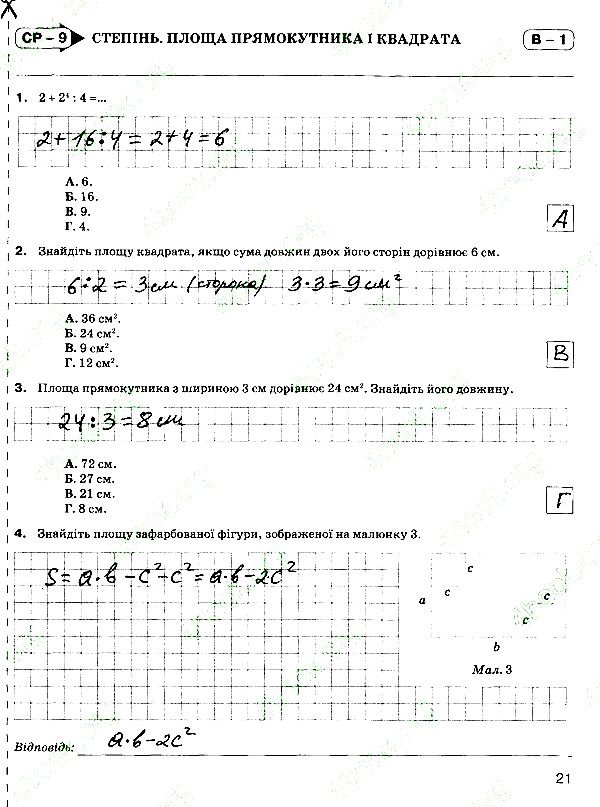 СР – 9 СТЕПІНЬ. ПЛОЩА ПРЯМОКУТНИКА І КВАДРАТА В – 1
1. 2 + 2⁴ : 4 = ...
2 + 16 : 4 = 2 + 4 = 6
А. 6.
Б. 16.
В. 9.
Г. 4.
А
2. Знайдіть площу квадрата, якщо сума довжин двох його сторін дорівнює 6 см.
6 : 2 = 3 см (сторона) 3 · 3 = 9 см²
А. 36 см².
Б. 24 см².
В. 9 см².
Г. 12 см².
В
3. Площа прямокутника з шириною 3 см дорівнює 24 см². Знайдіть його довжину.
24 : 3 = 8 см
А. 72 см.
Б. 27 см.
В. 21 см.
Г. 8 см.
Г
4. Знайдіть площу зафарбованої фігури, зображеної на малюнку 3.
S = a · b – c² – c² = a · b – 2c²
c
c
a
c
c
b
Мал. 3
Відповідь: a · b – 2c²
21